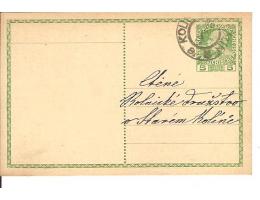 KOL
5 5
Ctěné
Rolnické družstvo
v Starém Kolíně